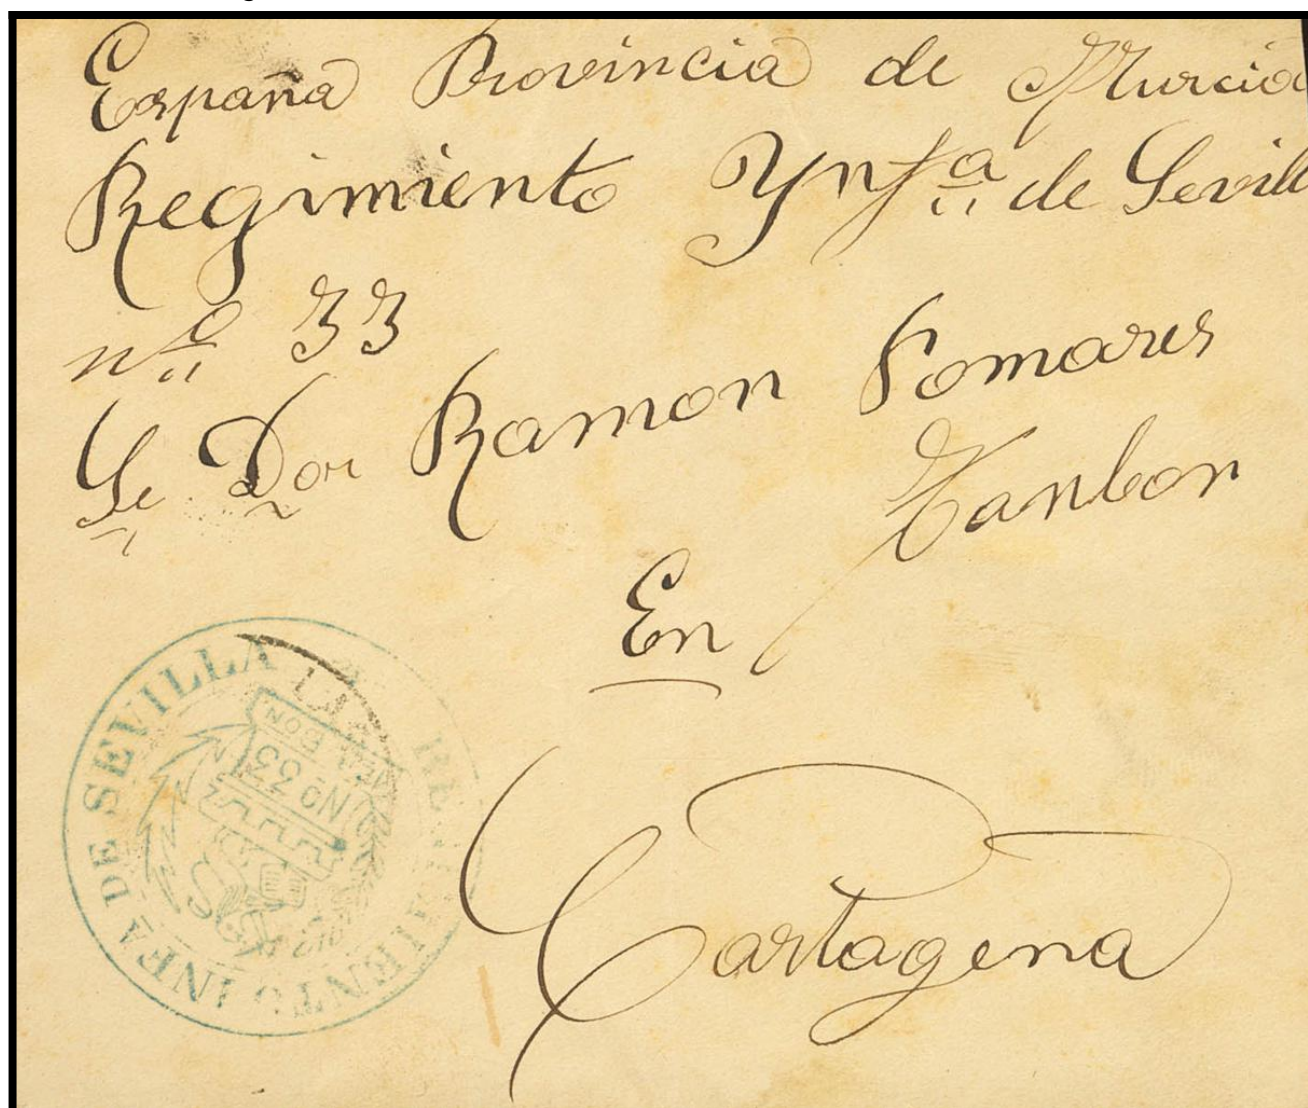 España Provincia de Murcia
Regimiento Ynfª de Sevill
nº 33
Sr Don Ramon Pomares
Tanbor
En
Cartagena
REGIMIENTO INFA DE SEVILLA
Nº 33
BON